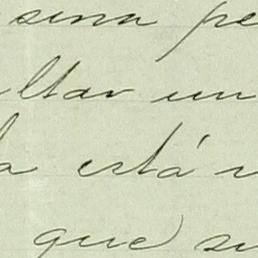 sinn pe
ltar un
a está
que su